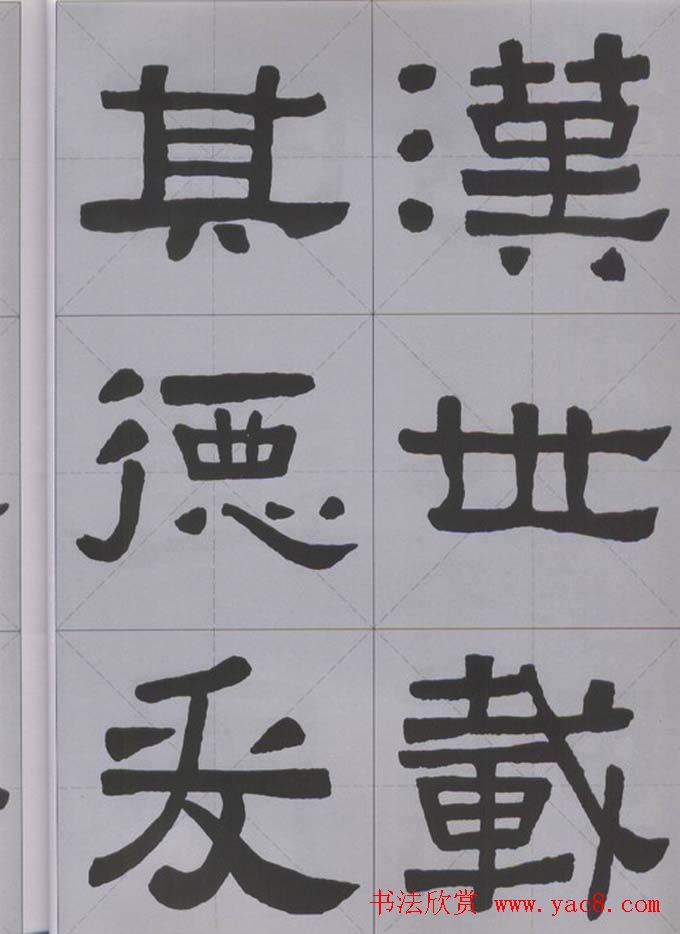 漢世載
其德爰
书法欣赏 www.yac8.com